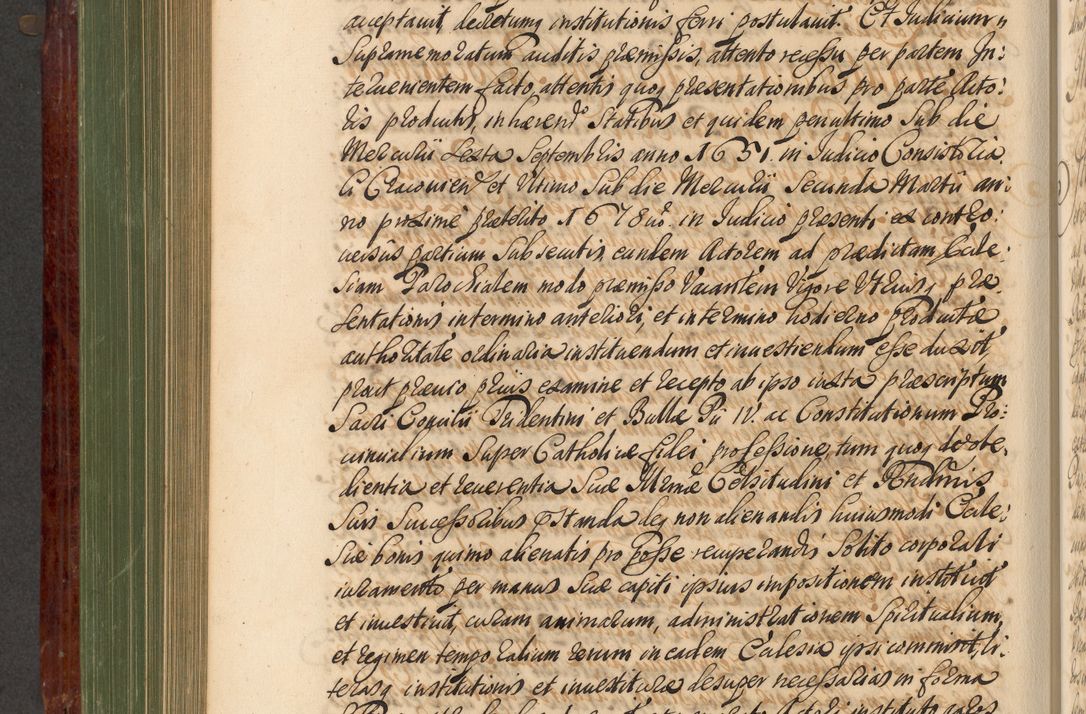 acceptavit, decretumq institutionis ferri postulavit. Et Judicium
Supramemoratum auditis præmissis, attento recessu per partem In:
tervenientem facto, attentis quoq præsentationibus pro parte Acto:
ris productis, in hærend Statibus et quidem penultimo Sub die
Mercurii Sexta Septembris anno 1651. in Judicio Consistoria
li Cracovien et Ultimo Sub die Mercurii Secunda Martii an:
no proxime præterito 1678vo. in Judicio præsenti ex contro:
versiis partium Subsecutis, eundem Actorem ad prædictam Eccle:
siam Parochialem modo præmisso Vacantem Vigore Utriusq præ
sentationis in termino anteriori, et in termino hodierno producta
authoritate ordinaria instituendum et investiendum esse duxit
prout prævio prius examine et recepto ab ipso iuxta præscriptum
Sacri Concilii Tridentini et Bullæ Pii IV. ac Constitutionum Pro:
vincialium Super Catholicæ fidei professione, tum quoq de obe:
dientia et reverentia Suæ Illrmæ Celsitudini et Rndmis
Suis Successoribus præstanda deq non alienandis huiusmodi Eccle:
siæ bonis quimo alienatis pro posse recuperandis Solito corporali
iuramento per manus Suæ capiti ipsius impositionem instituit
et investivit, curam animarum, administrationem Spiritualium,
et regimen temporalium rerum in eadem Ecclesia ipsi commisit, li:
terasq institutionis et investituræ desuper necessarias in forma